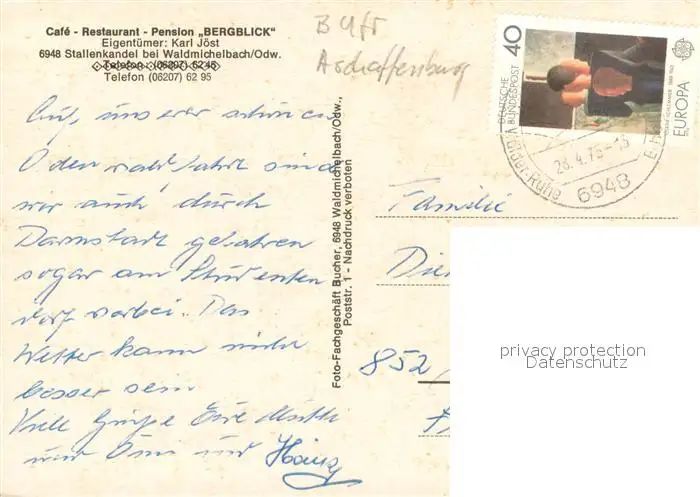 Café - Restaurant - Pension „BERGBLICK"
Eigentümer: Karl Jöst
6948 Stallenkandel bei Waldmichelbach/Odw.
Telefon (06207) 62 45
Telefon (06207) 62 95
Auf unserer schönen
Odenwaldfahrt sind
wir auch durch
Darmstadt gefahren
sogar am Studenten
dorf vorbei. Das
Wetter kann nicht
besser sein
Viele Grüße Eure Mutti
und Omi und
Foto-Fachgeschäft Bucher, 6948 Waldmichelbach/Odw.,
Poststr. 1 - Nachdruck verboten
B Ufr
Aschaffenburg
DEUTSCHE
BUNDESPOST
40
EUROPA
28.4.75-15
6948
Familie
852
privacy protection
Datenschutz